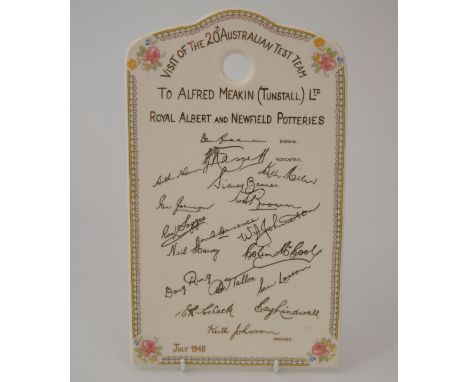 VISIT OF THE 20th AUSTRALIAN TEST TEAM
TO ALFRED MEAKIN (TUNSTALL) LTD
ROYAL ALBERT AND NEWFIELD POTTERIES
CAPTAIN.
VICE CAPTAIN.
Keith Miller
Sidney Barnes
Ian Johnson
Ron Saggers
W A Johnston
Neil Harvey
Colin McCool
Doug Ring
Don Tallon
Sam Loxton
Ray Lindwall
Keith Johnson
MANAGER.
JULY 1948